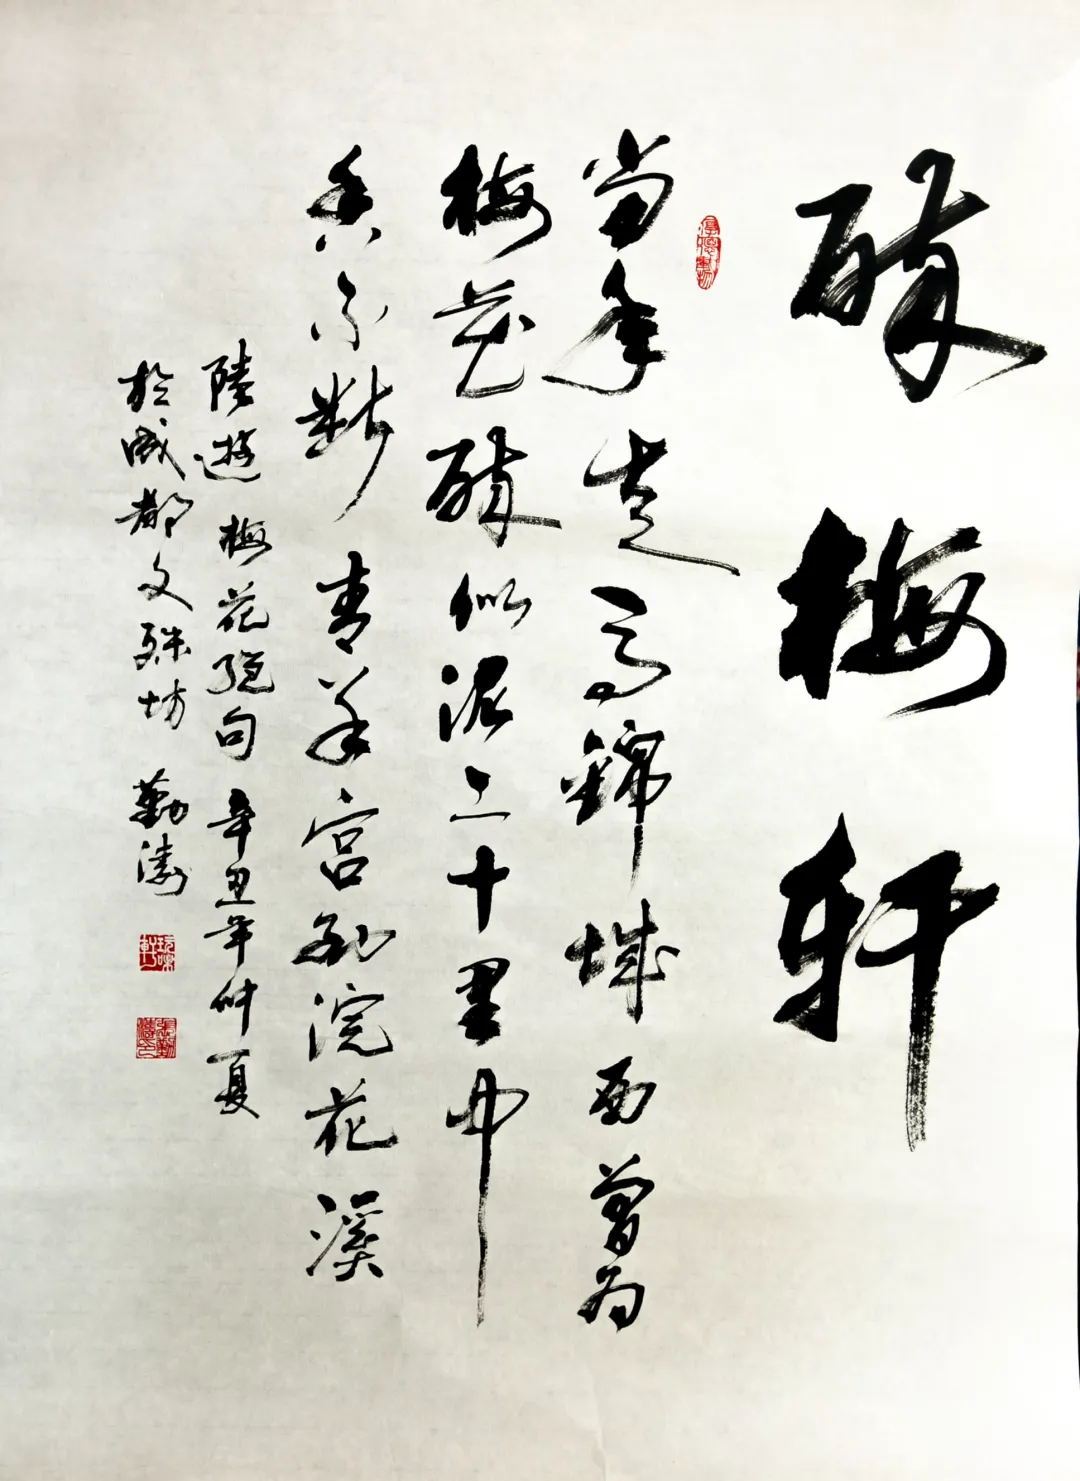 醉梅轩
当年走马锦城西曾为
梅花醉似泥二十里中
香不断青羊宫到浣花溪
陸遊梅花绝句辛丑年仲夏
於成都文殊坊勤涛